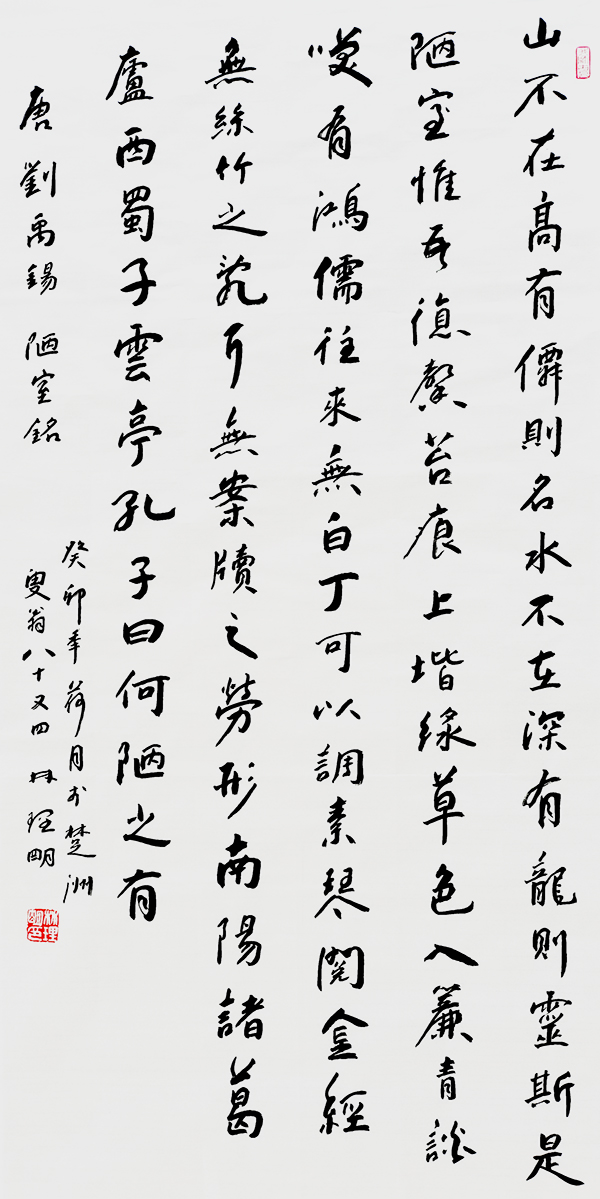 山不在髙有僊則名水不在深有龍則靈斯是
陋室惟吾徳馨苔痕上堦緑草色入簾青談
咲有鴻儒往來無白丁可以調素琴閲金經
無絲竹之亂耳無案牘之勞形南陽諸葛
廬西蜀子雲亭孔子曰何陋之有
唐劉禹錫陋室銘
癸卯年荷月於楚洲
叟翁八十又四林理明